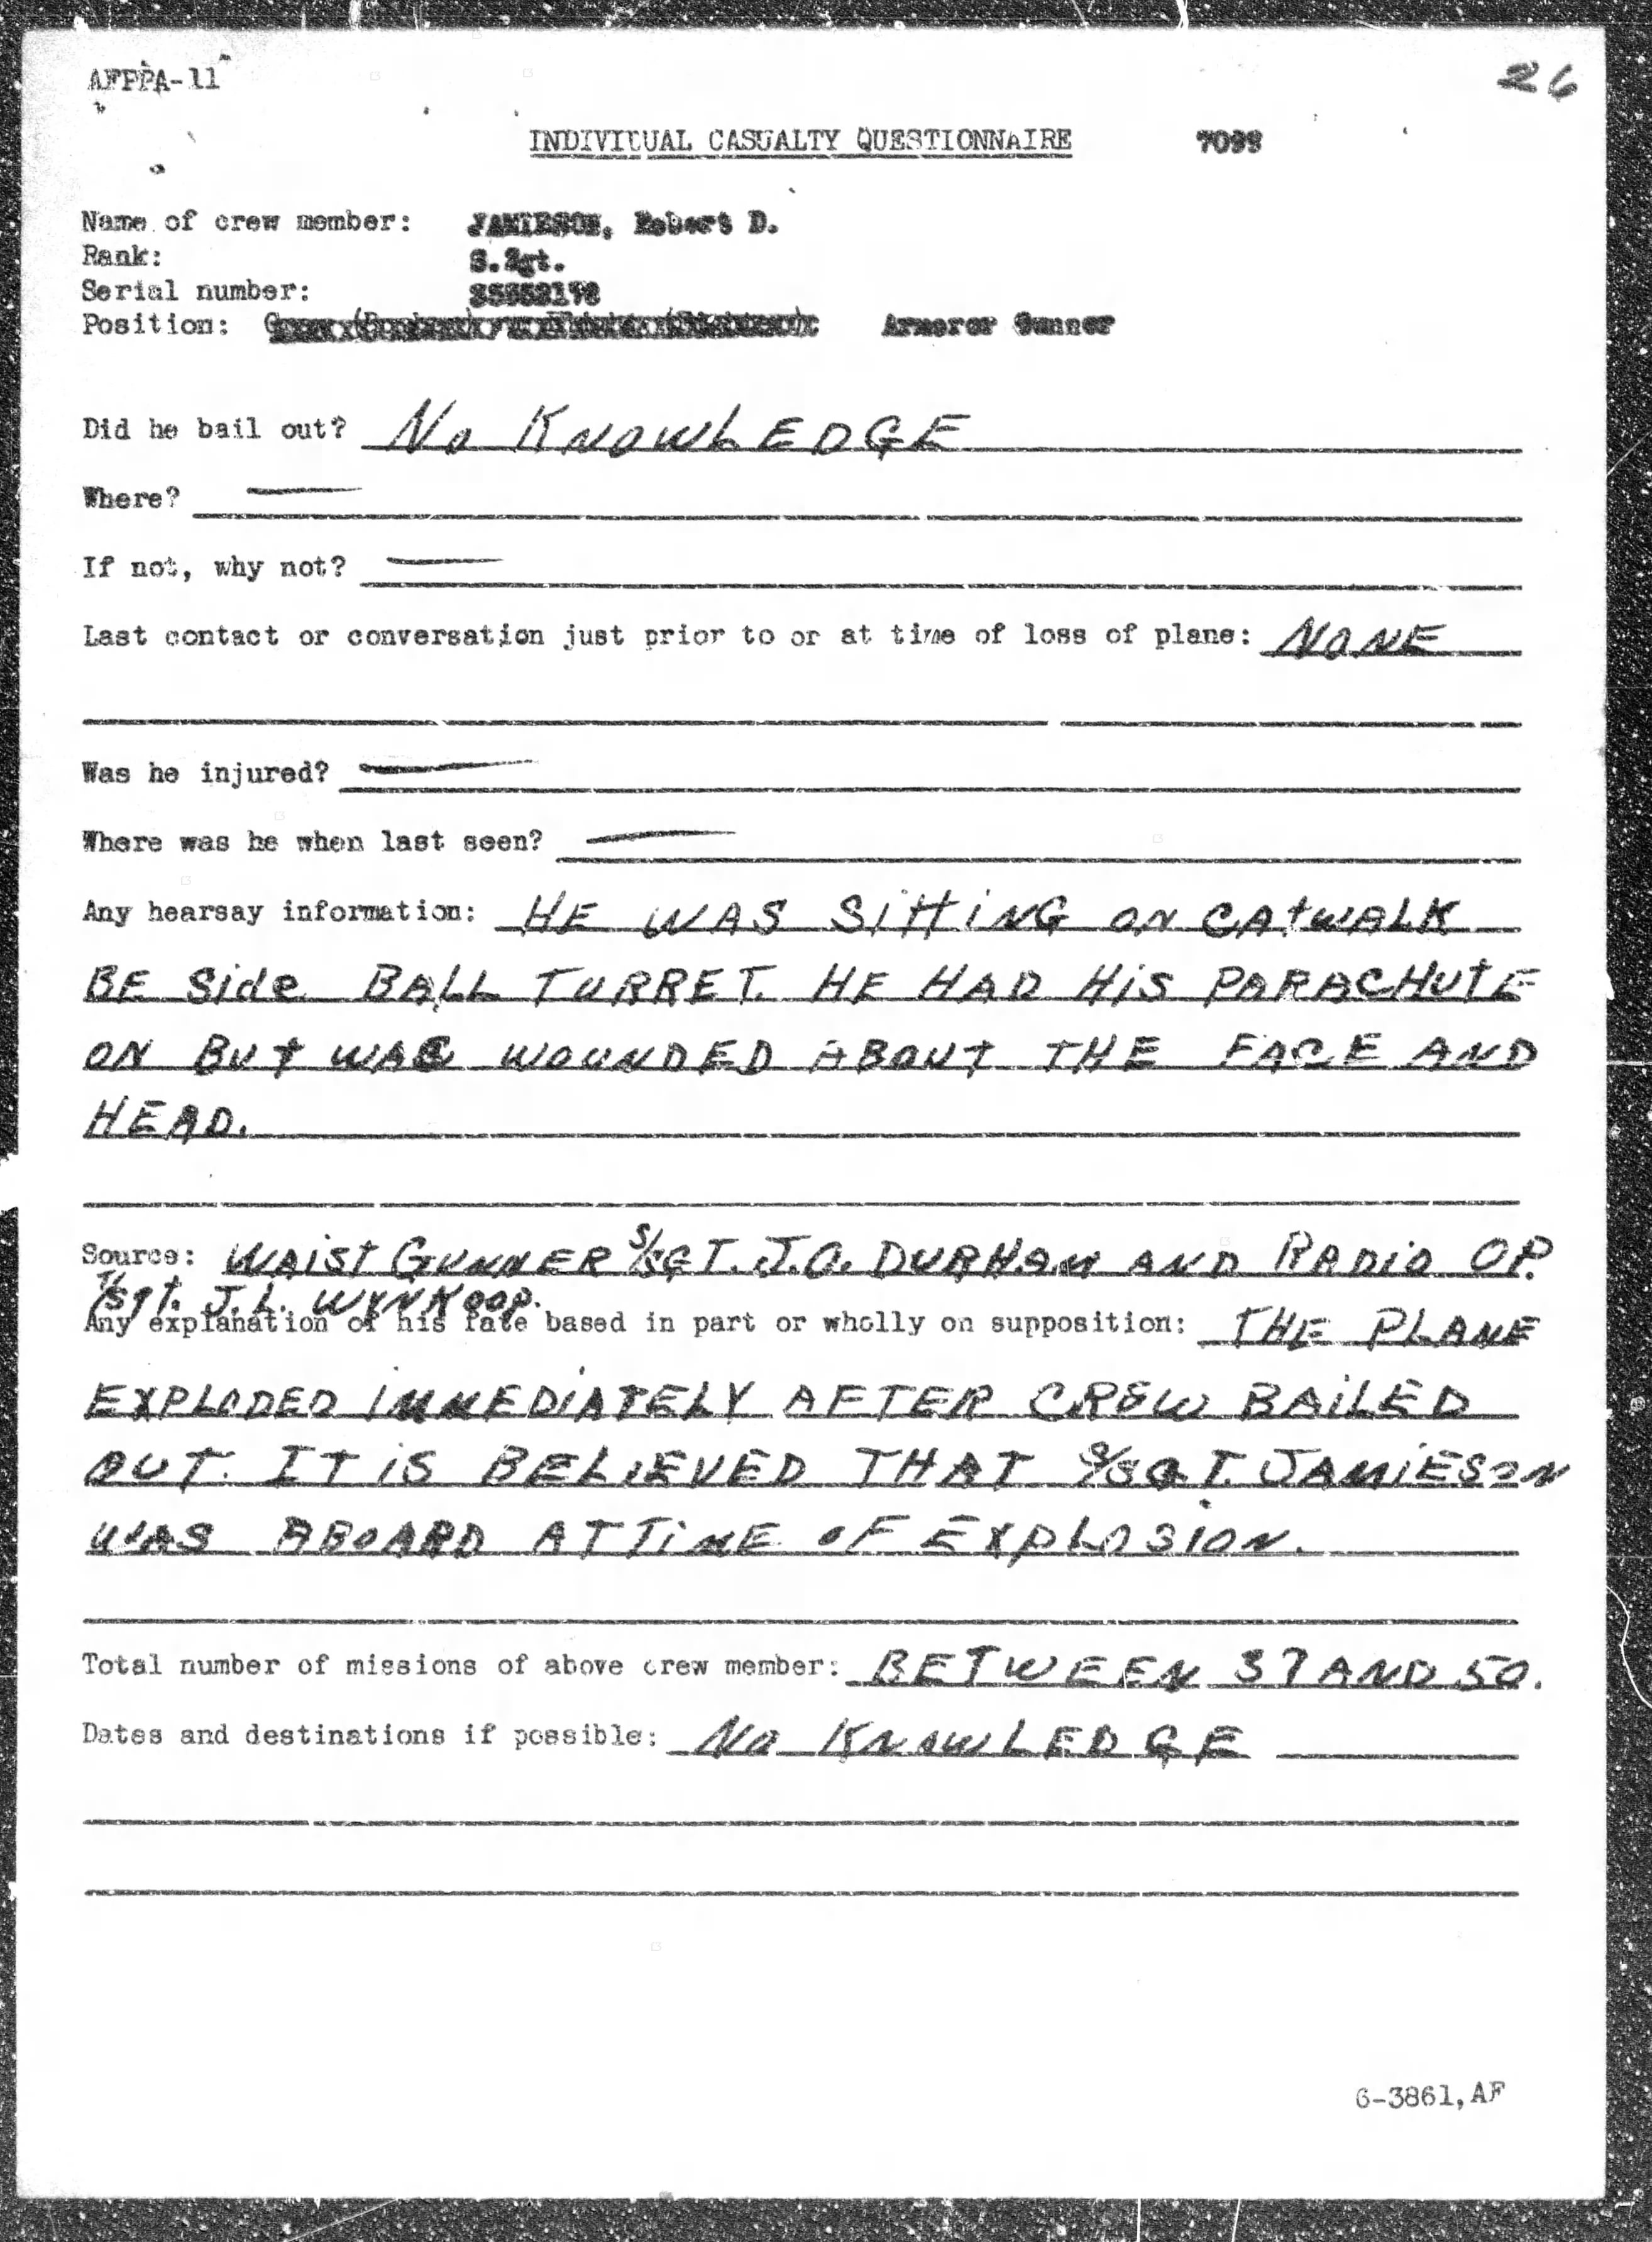 AFPPA-11
26
INDIVIDUAL CASUALTY QUESTIONNAIRE 7098
Name of crew member: JAMIESON, Robert D.
Rank: S.Sgt.
Serial number:
Position: Armorer Gunner
Did he bail out? No KNOWLEDGE
Where? —
If not, why not? —
Last contact or conversation just prior to or at time of loss of plane: NONE
Was he injured? —
Where was he when last seen? —
Any hearsay information: HE WAS SittiNG ON CAtWALK
BE Side BALL TURRET. HE HAD HiS PARACHUtE
ON BUt WAS WOUNDED ABOUt THE FACE AND
HEAD.
Source: WAiSt GUNNER S/SGT. J.O. DURHAM AND RADiO OP.
T/Sgt. J.L. WYNKOOP.
Any explanation of his fate based in part or wholly on supposition: THE PLANE
EXPLODED IMMEDiATELY AFTER CREW BAiLED
OUT. IT iS BELiEVED THAT S/SGT. JAMiESON
WAS ABOARD AT TiME OF EXPLOSiON.
Total number of missions of above crew member: BETWEEN 37 AND 50.
Dates and destinations if possible: No KNOWLEDGE
6-3861,AF